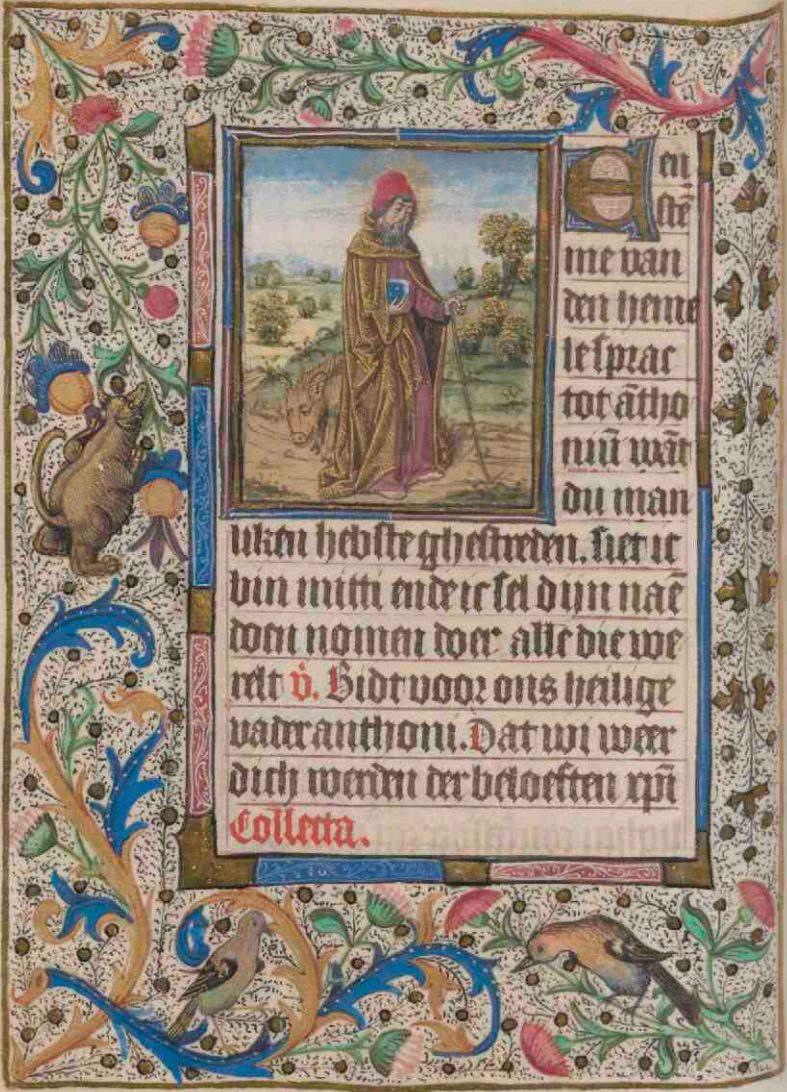 Een
stē
me van
den heme
le sprac
tot ātho
niū wāt
du man
liken hebste ghestreden. siet ic
bin mitti ende ic sel dijn naē
doen nomen doer alle die we
relt v̇. Bidt voor ons heilige
vader anthoni. Dat wi weer
dich werden der beloeften xp̄i
Collecta.